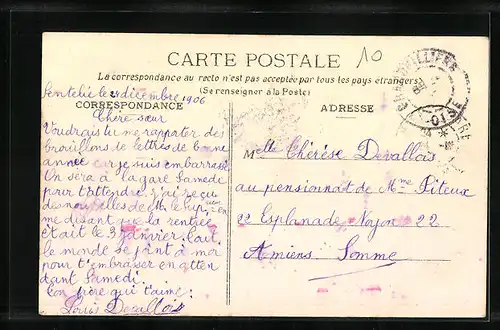 CARTE POSTALE
10
La correspondance au recto n'est pas acceptée par tous les pays étrangers
(Se renseigner à la Poste)
CORRESPONDANCE
ADRESSE
le 28 décembre 1906
Chère sœur
Voudrais tu me rapporter des
brouillons de lettres de bonne
année car je suis embarrassé
On sera à la gare Samedi
pour t'attendre j'ai reçu
des nouvelles de M. le en
me disant que la rentrée
était le 3 janvier tout
le monde se joint à moi
pour t'embrasser en atten
dant Samedi.
ton frère qui t'aime:
Louis Devallois
Melle Thérèse Devallois
au pensionnat de Mme Piteux
22 Esplanade Noyon 22
Amiens Somme
OISE